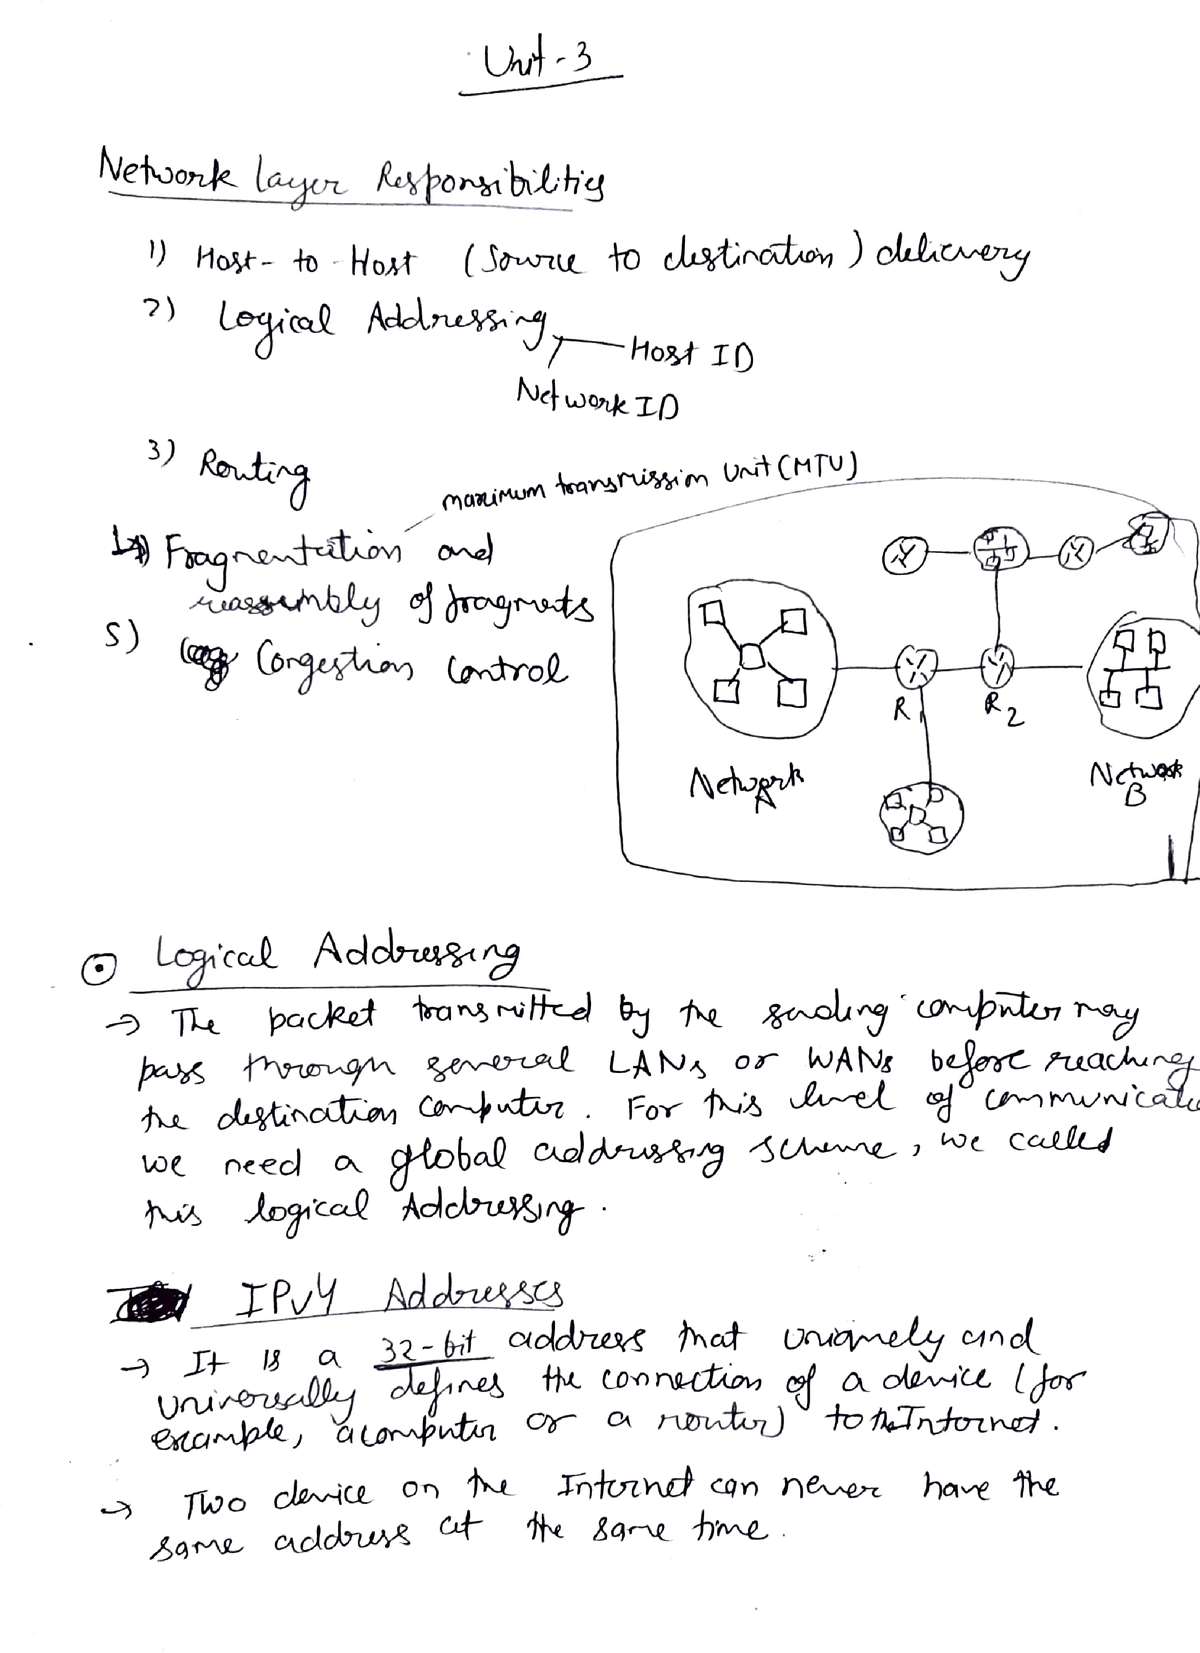 Unit - 3
Network Layer Responsibilities
1) Host - to - Host (Source to destination) delievery
2) Logical Addressing
Host ID
Network ID
3) Routing
maximum transmission Unit (MTU)
4) Fragmentation and
reassembly of fragments
5) Congestion Control
R1
R2
Network
A
Network
B
Logical Addressing
→ The packet transmitted by the sending computer may
pass through several LANs or WANs before reaching
the destination computer. For this level of communicatio
we need a global addressing scheme, we called
this logical Addressing.
IPv4 Addresses
→ It is a 32-bit address that uniquely and
universally defines the connection of a device (for
example, a computer or a router) to the Internet.
→ Two device on the Internet can never have the
same address at the same time.